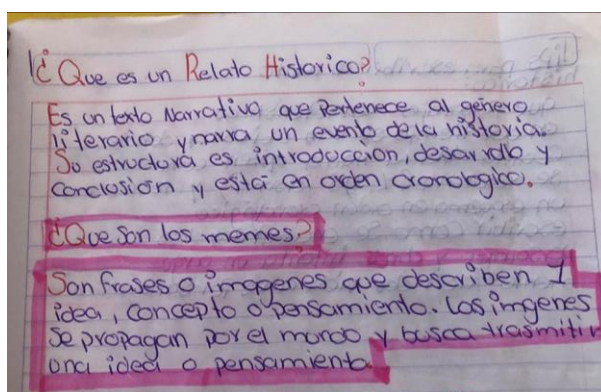 ¿Que es un Relato Historico?
Es un texto Narrativo que Pertenece al género
literario y narra un evento de la historia.
Su estructura es introducción, desarrollo y
conclusión y está en orden cronologico.
¿Que son los memes?
Son frases o imagenes que describen 1
idea, concepto o pensamiento. Las imgenes
se propagan por el mundo y busca trasmitir
una idea o pensamiento.